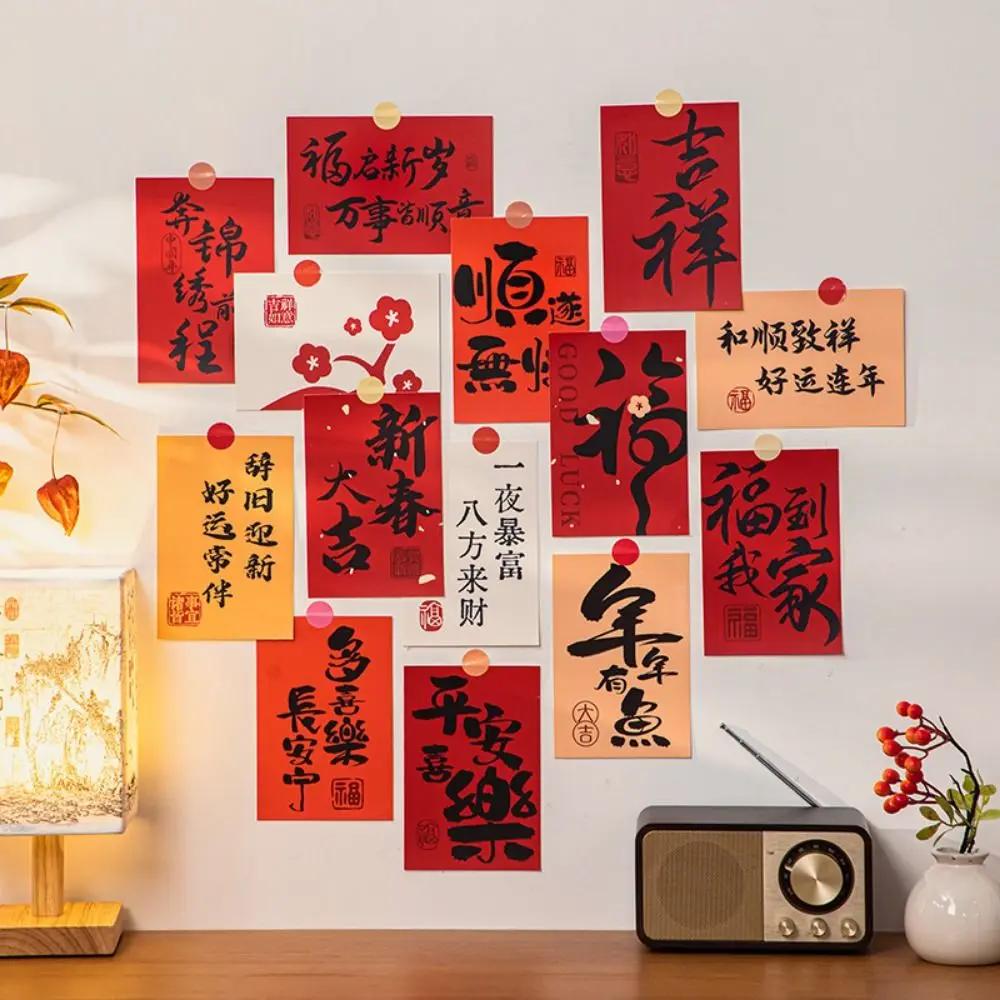 福启新岁
万事皆顺意
吉祥
如意
奔
锦
绣
前
程
吉祥
如意
順遂
無
福
和顺致祥
好运连年
福
福
GOOD LUCK
新春
大吉
辞旧迎新
好运常伴
一夜暴富
八方来财
福
福到
我家
福
年年
有魚
大吉
多喜樂
長安宁
福
平安
喜樂